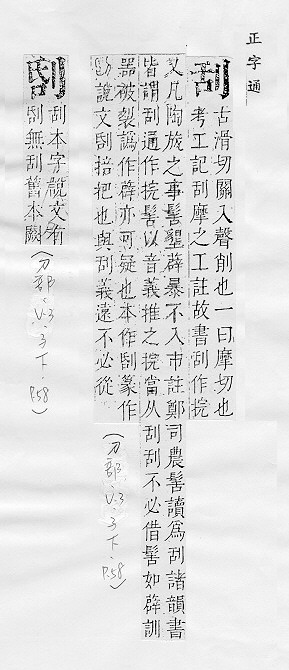 正字通
刮
古滑切關入聲削也一曰摩切也
考工記刮摩之工註故書刮作捖
又凡陶旊之事髺墾薜暴不入市註鄭司農髺讀爲刮諸韻書
皆謂刮通作捖髺以音義推之捖當从刮刮不必借髺如薜訓
器被裂譌作薜亦可疑也本作篆作
說文掊把也與刮義遠不必從
(刀部.V.3.3下.P.58)
刮本字說文有
無刮舊本闕
(刀部.V.3.3下.P.58)